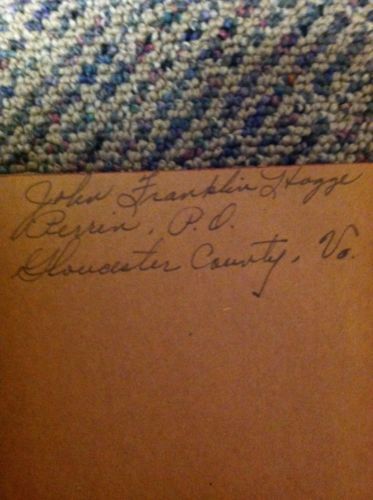 John Franklin Hogge
Perrin, P.O.
Gloucester County, Va.